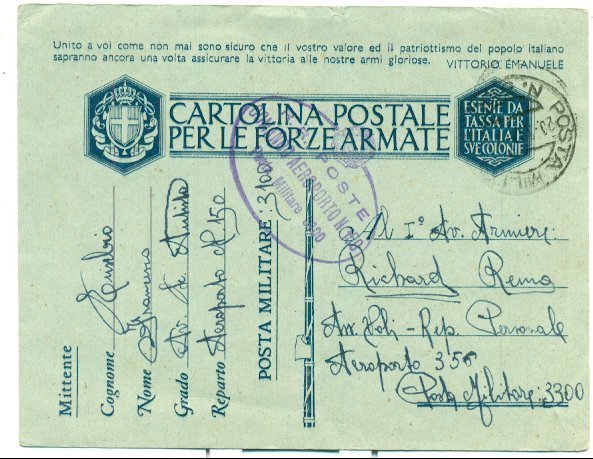 Unito a voi come non mai sono sicuro che il vostro valore ed il patriottismo del popolo italiano
sapranno ancora una volta assicurare la vittoria alle nostre armi gloriose. VITTORIO EMANUELE
CARTOLINA POSTALE
PER LE FORZE ARMATE
ESENTE DA
TASSA PER
L'ITALIA E
SVE COLONIE
POSTA
POSTE
AEROPORTO N.
Posta Militare 3100
Mittente
Cognome Eusebio
Nome Francesco
Grado Av. Sc.
Reparto Aeroporto N. 150
POSTA MILITARE: 3100
Al I° Av. Armiere
Richard Remo
Aeroporto 350
Posta Militare: 3300